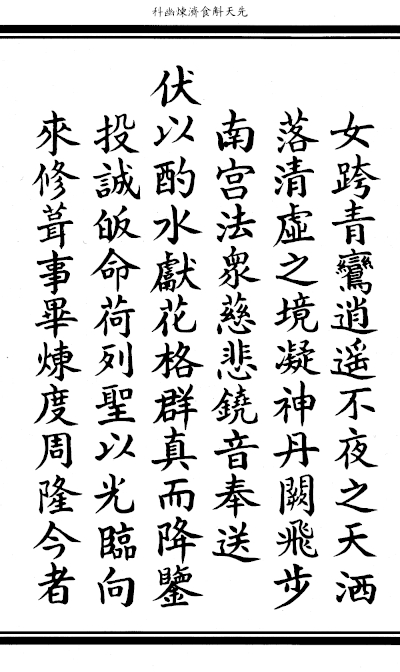 科幽煉濟食斛天先
女跨青鸞逍遥不夜之天洒
落清虛之境凝神丹闕飛步
南宫法衆慈悲鐃音奉送
伏以酌水獻花格群真而降鑒
投誠皈命荷列聖以光臨向
來修葺事畢煉度周隆今者